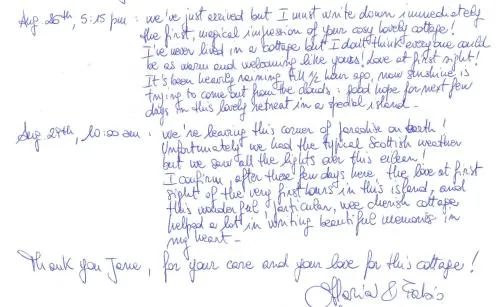 Aug. 25th, 5:15 pm : we've just arrived but I must write down immediately
the first, magical impression of your cosy lovely cottage!
I've never lived in a cottage but I don't think everyone could
be as warm and welcoming like yours! Love at first sight!
It's been heavily raining till ½ hour ago, now sunshine is
trying to come out from the clouds : good hope for next few
days in this lovely retreat in a special island -
Aug. 29th, 10:00 am : we're leaving this corner of paradise on earth!
Unfortunately we had the typical Scottish weather
but we saw all the lights over this eileen!
I confirm, after these few days here, the love at first
sight of the very first hours in this island, and
this wonderful, particular, wee cherish cottage
helped a lot in writing beautiful memories in
my heart -
Thank you Jane, for your care and your love for this cottage!
& Fabio